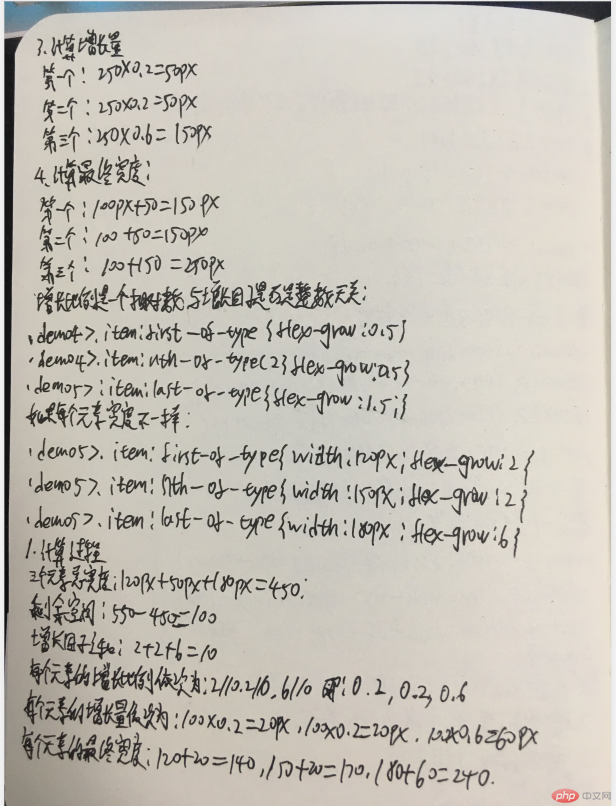 3.计算增长量
第一个：250X0.2=50px
第二个：250X0.2=50px
第三个：250X0.6=150px
4.计算最终宽度：
第一个：100px+50=150px
第二个：100+50=150px
第三个：100+150=250px
增长比例是一个相对数与增长因子是否是整数无关：
.demo4>.item:first-of-type{flex-grow:0.5}
.demo4>.item:nth-of-type(2){flex-grow:0.5}
.demo5>:item:last-of-type{flex-grow:1.5;}
如果每个元素宽度不一样：
.demo5>.item:first-of-type{width:120px;flex-grow:2}
.demo5>.item:nth-of-type{width:150px;flex-grow:2}
.demo5>.item:last-of-type{width:180px;flex-grow:6}
1.计算过程
三个元素总宽度:120px+50px+180px=450;
剩余空间：550-450=100
增长因子之和：2+2+6=10
每个元素的增长比例依次为:2/10.2/10.6/10 即：0.2,0.2,0.6
每个元素的增长量依次为：100X0.2=20px,100X0.2=20px.100X0.6=60px
每个元素的最终宽度：120+20=140,150+20=170,180+60=240.
php中文网